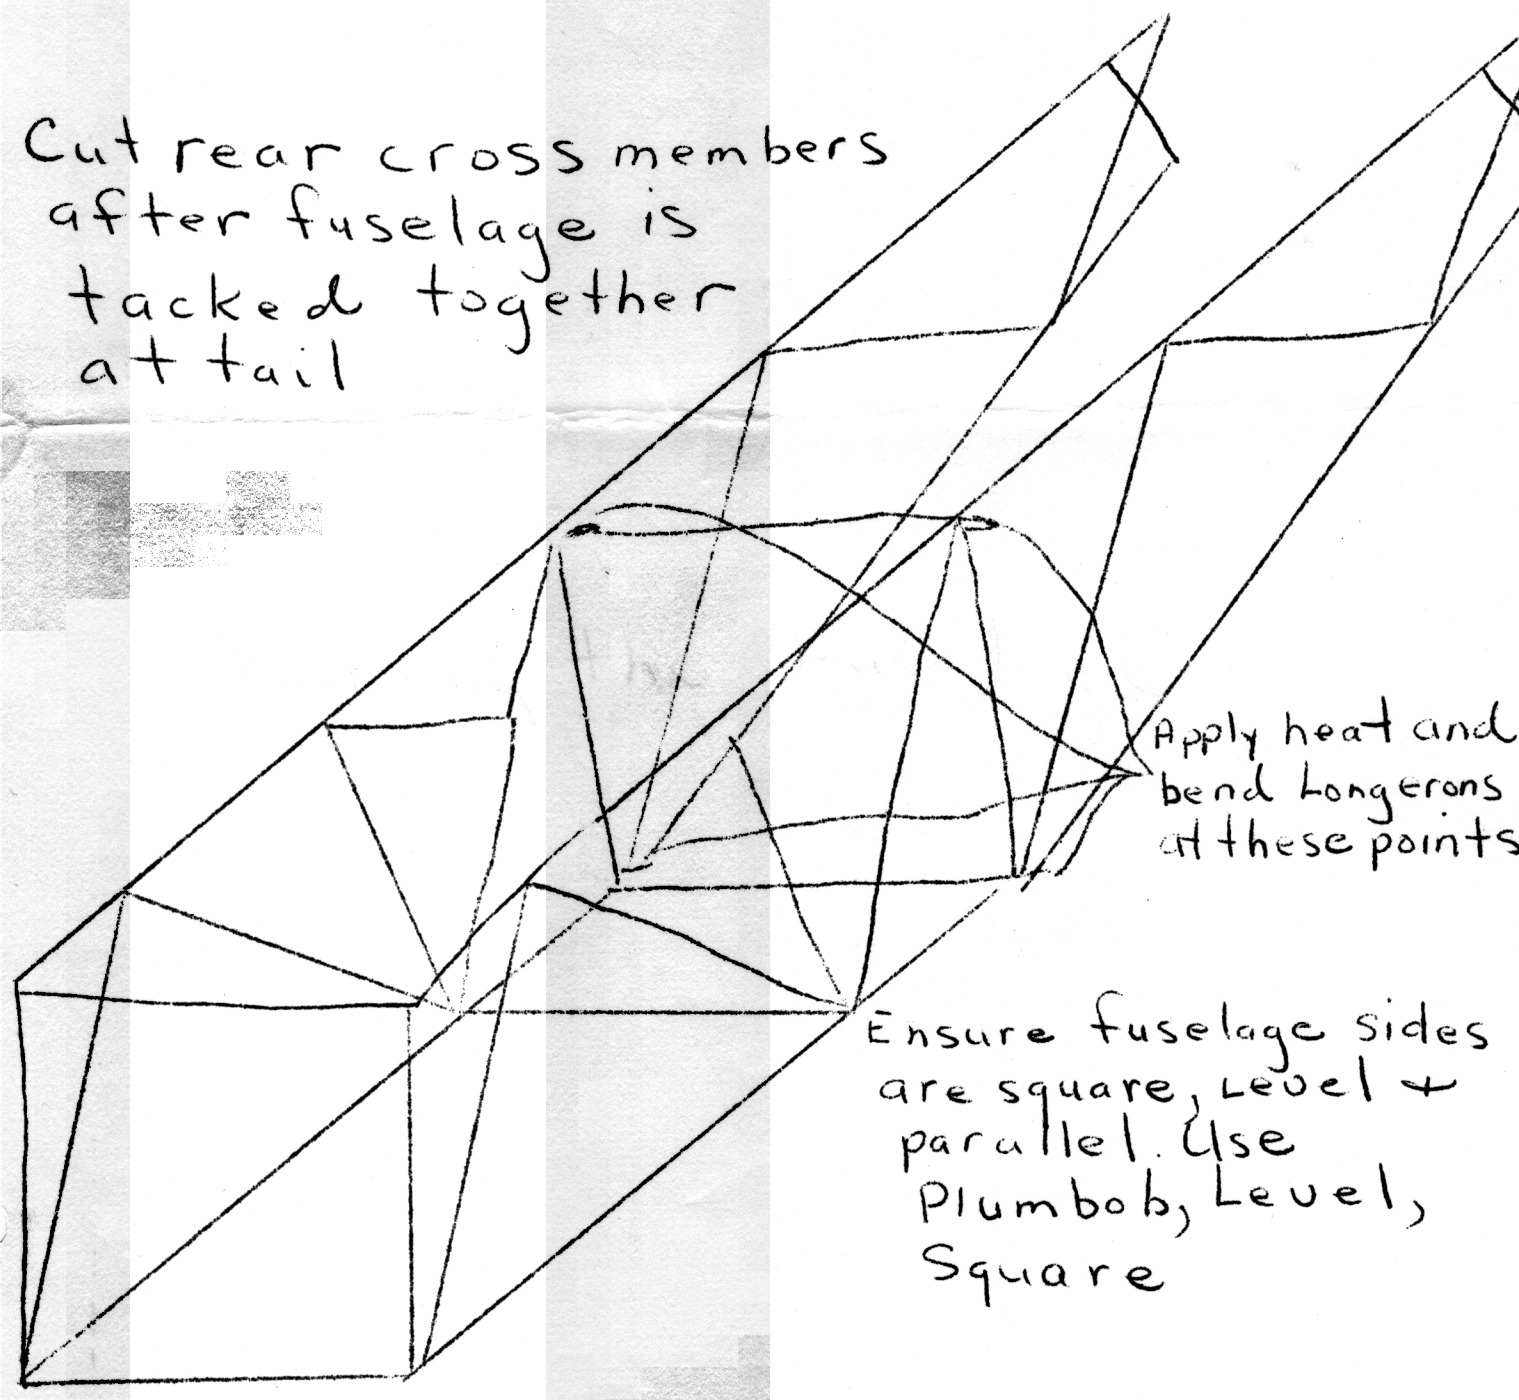 Cut rear cross members
after fuselage is
tacked together
at tail
Apply heat and
bend Longerons
at these points
Ensure fuselage sides
are square, Level +
parallel. Use
Plumbob, Level,
Square